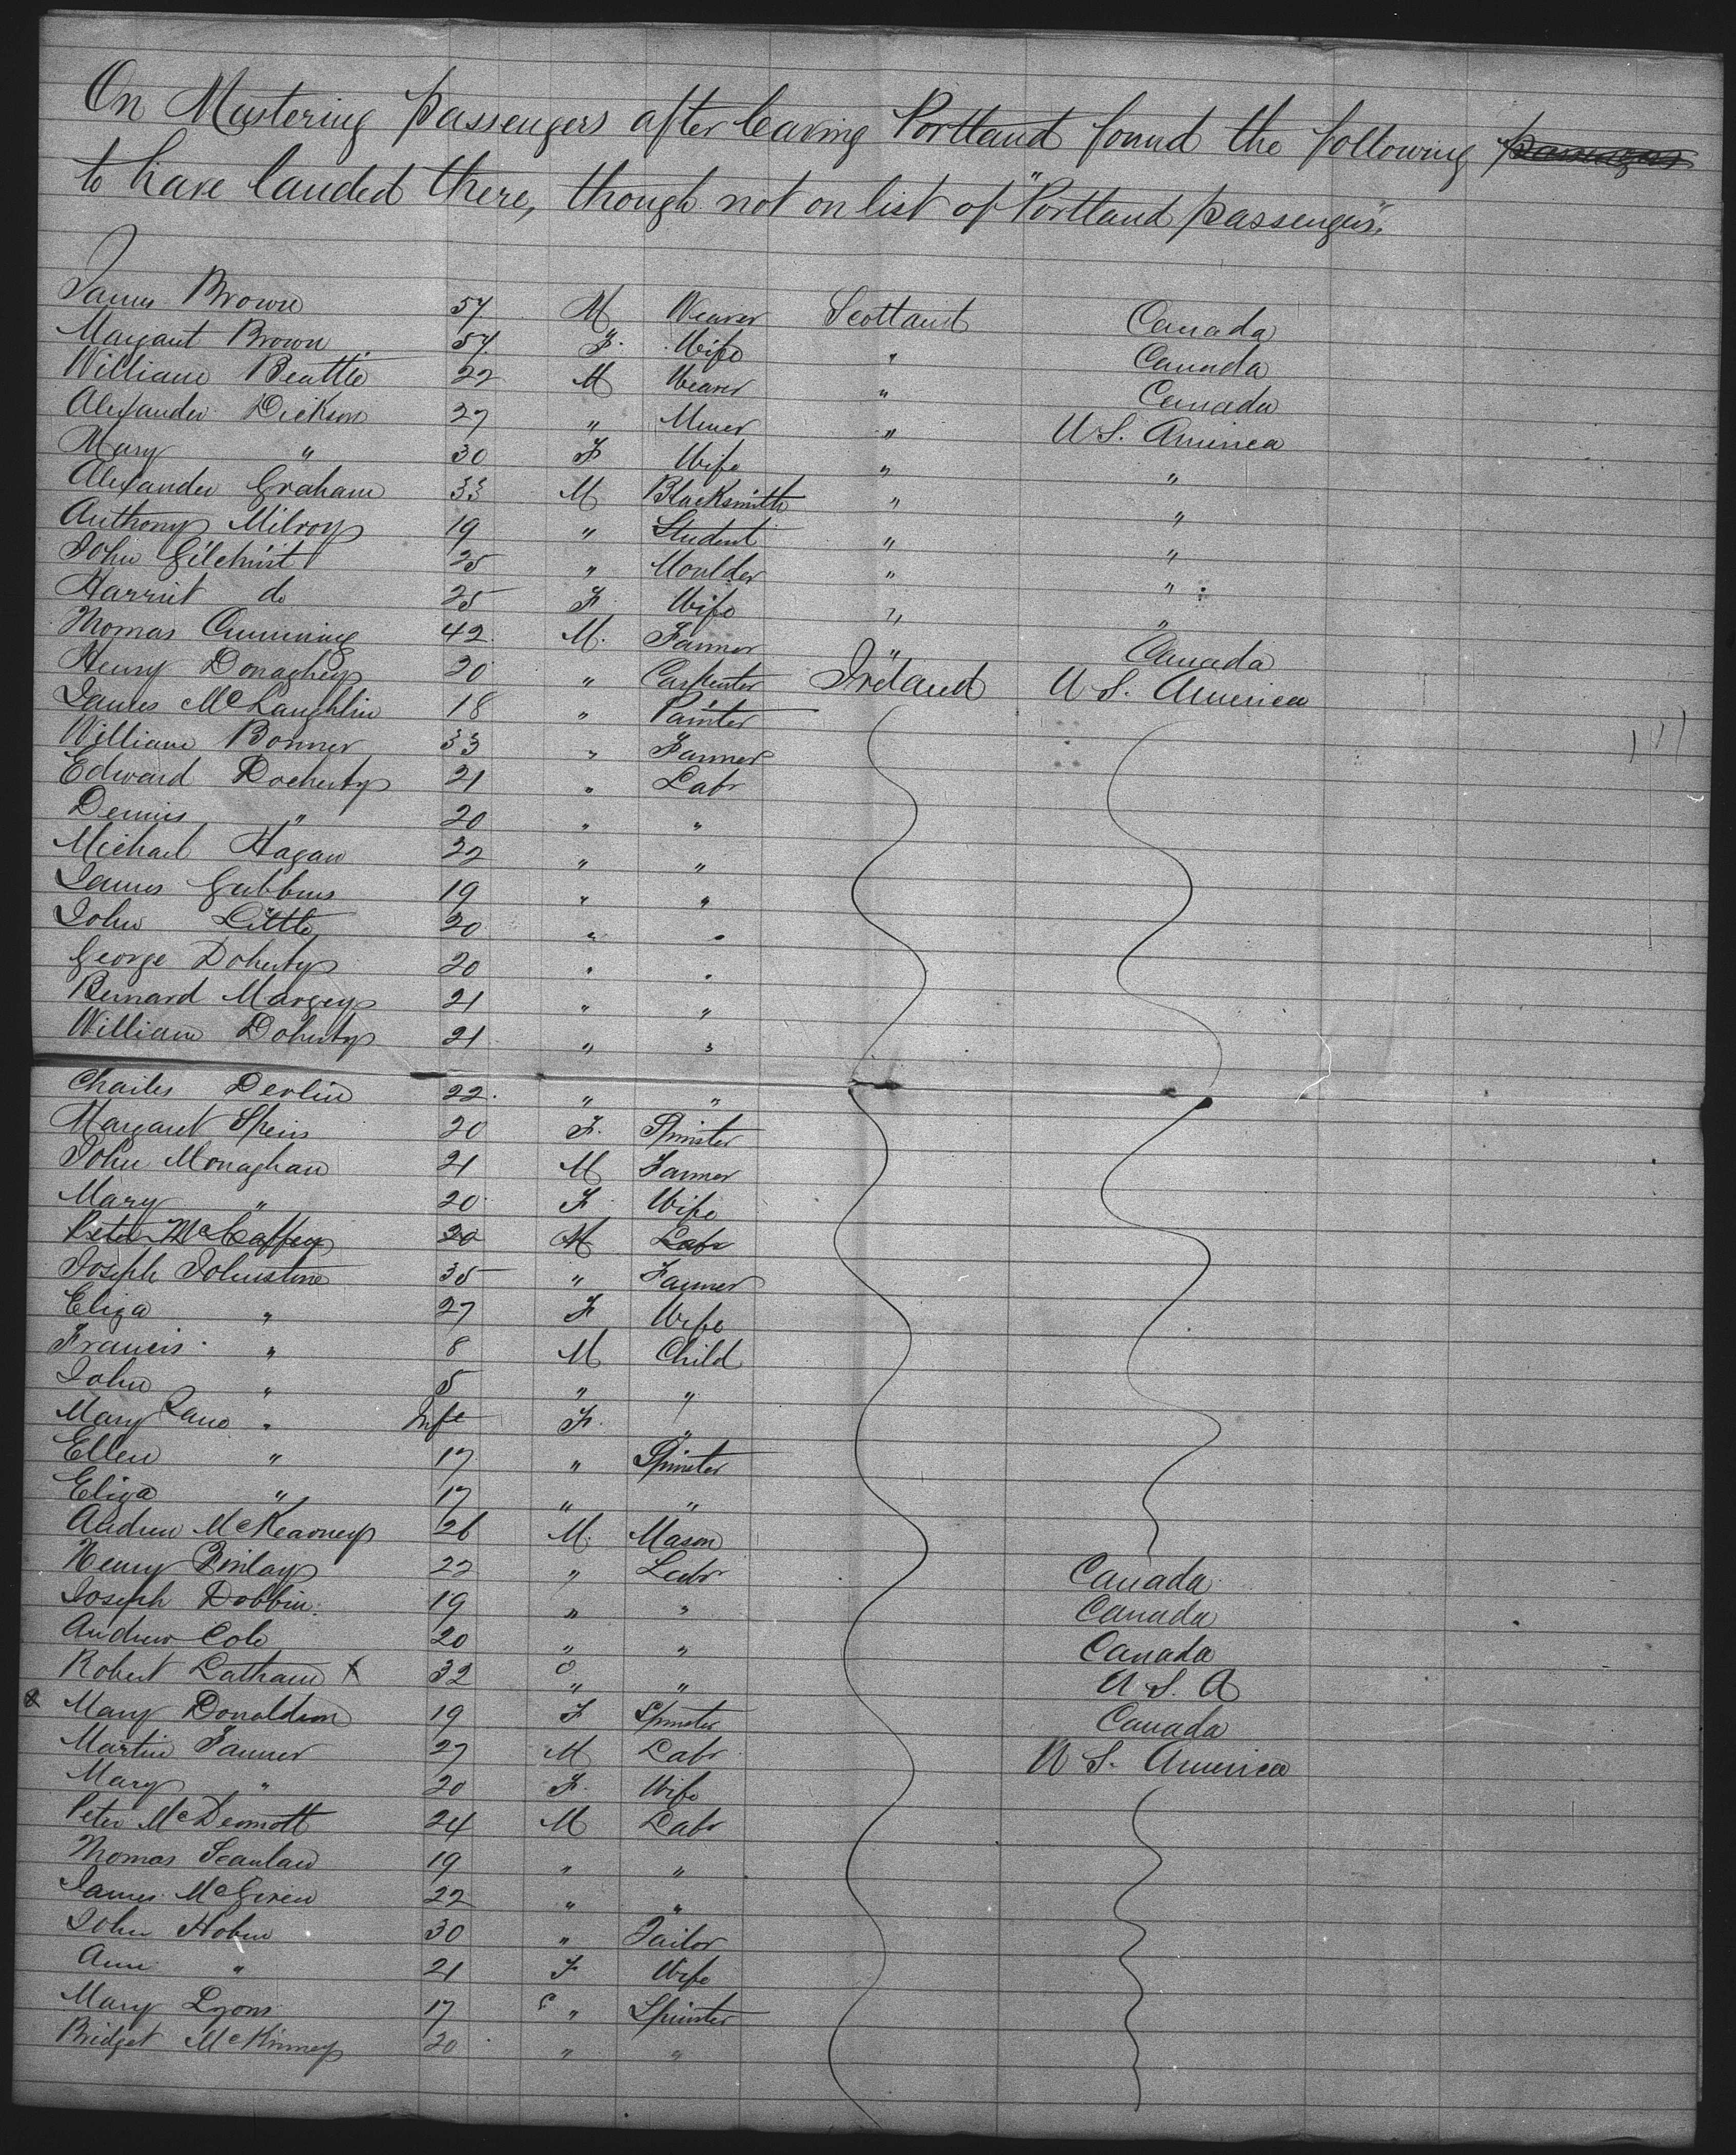 On Mustering passengers after leaving Portland found the following passengers
to have landed there, though not on list of "Portland passengers".
James Brown 57 M Weaver Scotland Canada
Margaret Brown 57 F. Wife " Canada
William Beattie 22 M Weaver " Canada
Alexander Dickson 27 " Miner " U.S. America
Mary " 30 F Wife " "
Alexander Graham 33 M Blacksmith " "
Anthony Milroy 19 " Student " "
John Gilchrist 25 " Moulder " "
Harriet do 25 F Wife " "
Thomas Cumming 42 M. Farmer " Canada
Henry Donaghey 20 " Carpenter Ireland U.S. America
James McLaughlin 18 " Painter
William Bonner 33 " Farmer
Edward Docherty 21 " Labr
Dennis " 20 " "
Michael Hagan 22 " "
James Gubbins 19 " "
John Little 20 " "
George Doherty 20 " "
Bernard Margey 21 " "
William Doherty 21 " "
Charles Devlin 22. " "
Margaret Speirs 20 F. Spinster
John Monaghan 21 M Farmer
Mary " 20 F Wife
Peter McCaffery 20 M Labr
Joseph Johnstone 35 " Farmer
Eliza " 27 F Wife
Francis " 8 M Child
John " 5 " "
Mary Jane " Inft F. "
Ellen " 17 " Spinster
Eliza " 17 " "
Andrew McKearney 26 M. Mason
Henry Finlay 22 " Labr Canada
Joseph Dobbin 19 " " Canada
Andrew Cole 20 " " Canada
Robert Latham x 32 " " U.S.A
x Mary Donaldson 19 F Spinster Canada
Martin Farmer 27 M Labr U S. America
Mary " 20 F. Wife
Peter McDermott 24 M Labr
Thomas Scanlan 19 " "
James McGiren 22 " "
John Hoben 30 " Tailor
Ann " 21 F Wife
Mary Lyons 17 " Spinster
Bridget McKinney 20 " "